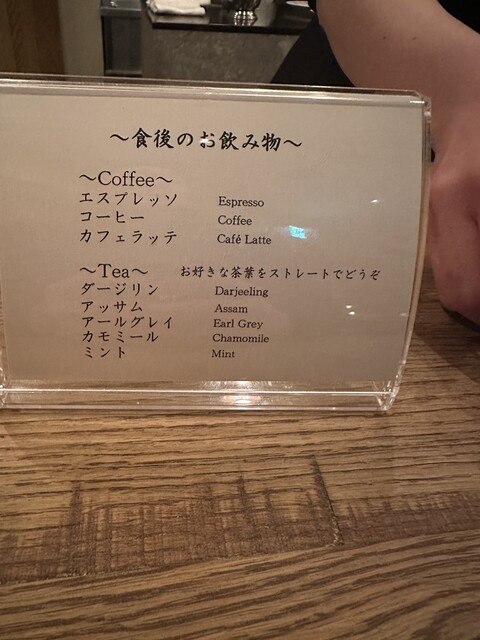 ～食後のお飲み物～
～Coffee～
エスプレッソ Espresso
コーヒー Coffee
カフェラッテ Café Latte
～Tea～ お好きな茶葉をストレートでどうぞ
ダージリン Darjeeling
アッサム Assam
アールグレイ Earl Grey
カモミール Chamomile
ミント Mint